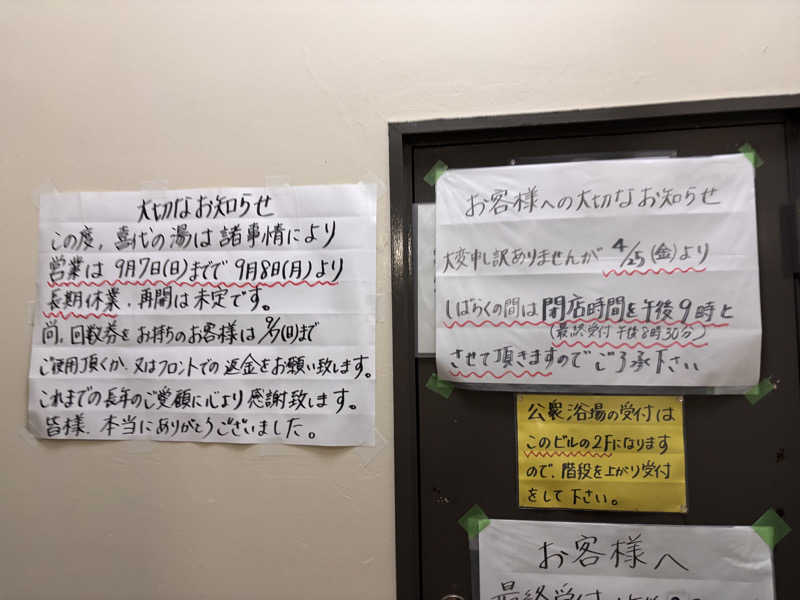 大切なお知らせ
この度、喜代の湯は諸事情により
営業は9月7日(日)までで9月8日(月)より
長期休業、再開は未定です。
尚、回数券をお持ちのお客様は9/7(日)まで
ご使用頂くか、又はフロントでの返金をお願い致します。
これまでの長年のご愛顧に心より感謝致します。
皆様、本当にありがとうございました。
お客様への大切なお知らせ
大変申し訳ありませんが 4/25(金)より
しばらくの間は閉店時間を午後9時と
(最終受付 午後8時30分)
させて頂きますのでご了承下さい
公衆浴場の受付は
このビルの2Fになります
ので、階段を上がり受付
をして下さい。
お客様へ
最終受付